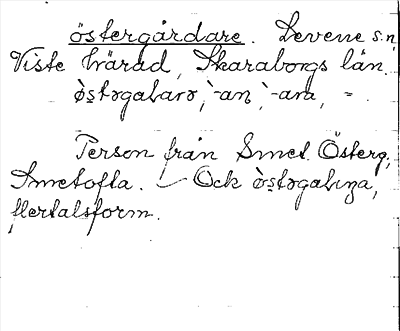 östergårdare. Levene s:n,
Viste härad, Skaraborgs län.
òstəgaḷarə, -an, -ara, =.
Person från Smet. Österg,
Smetofta. — Ock òstəgaḷıŋa,
flertalsform.